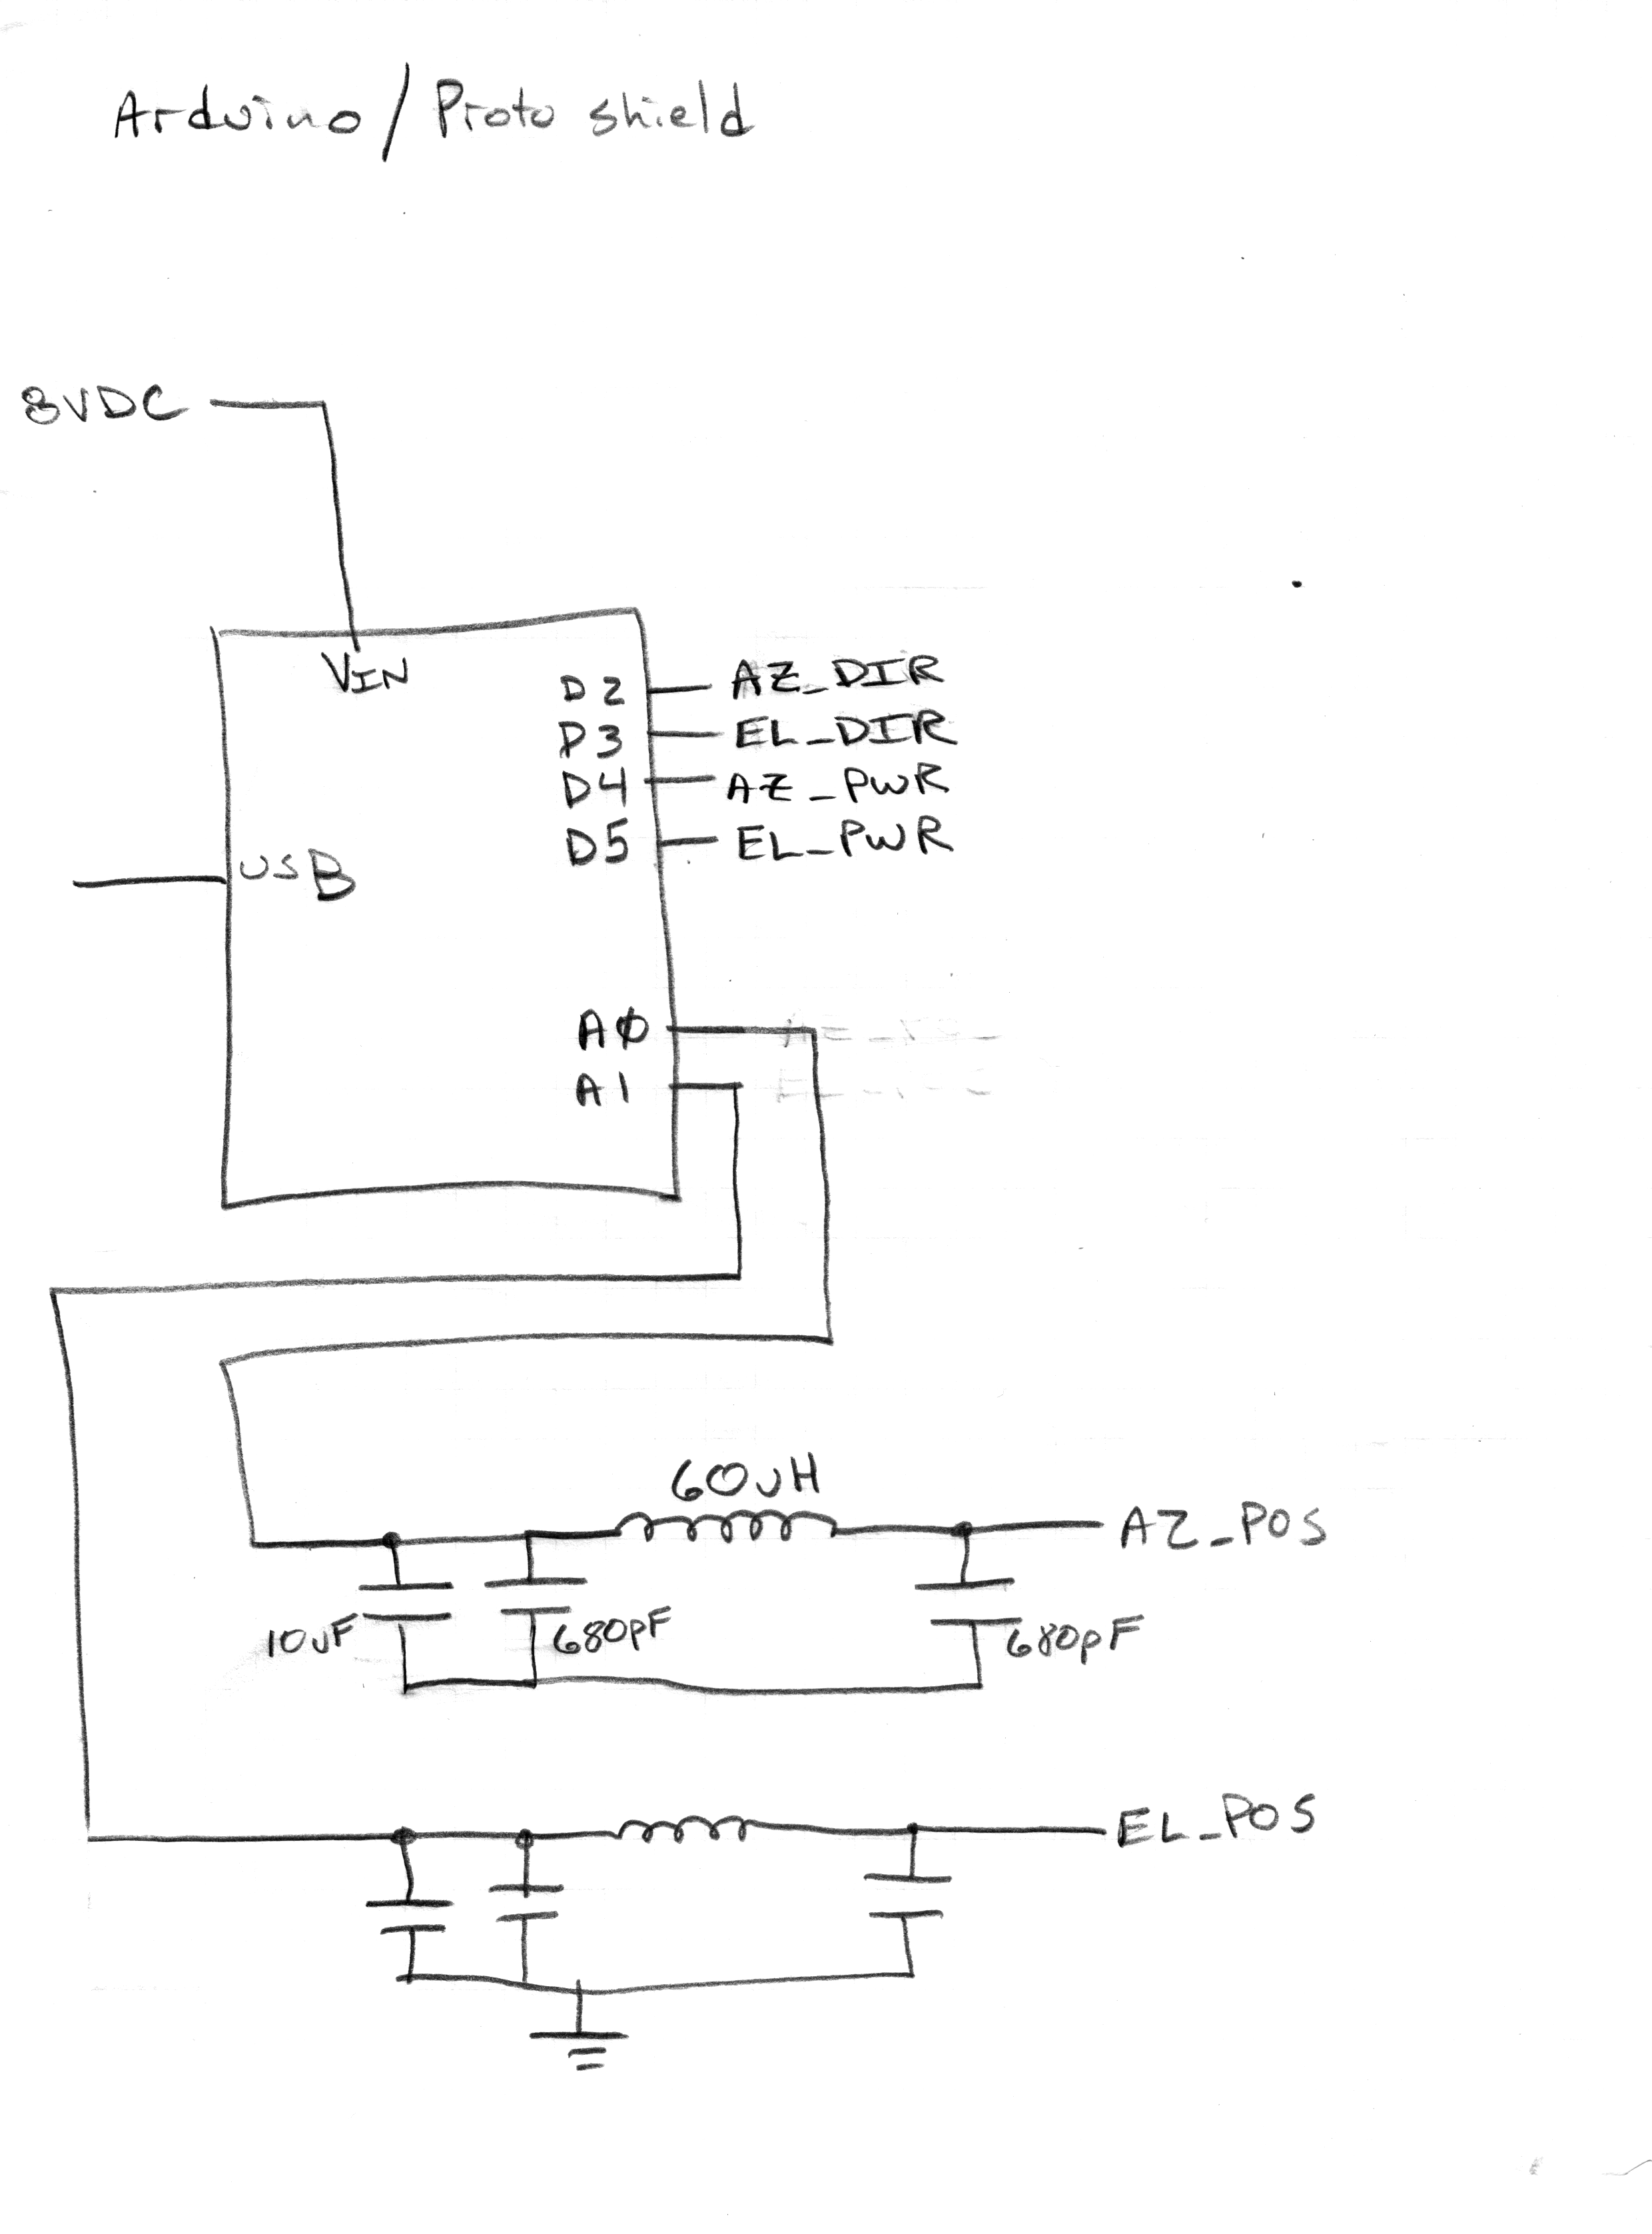 Arduino / Proto shield
8VDC
VIN
D2 AZ_DIR
D3 EL_DIR
D4 AZ_PWR
D5 EL_PWR
USB
A0
A1
60uH
AZ_POS
10uF 680pF 680pF
EL_POS